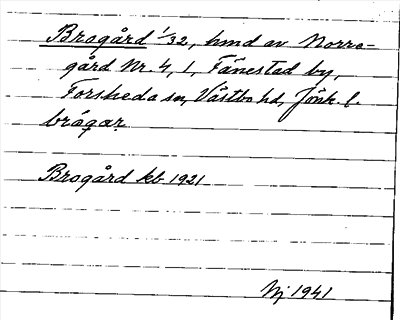 Brogård 1/32, hmd av Norra-
gård Nr. 4, 1, Fänestad by,
Forsheda sn, Västbo hd, Jönk. l.
brógar.
Brogård kb 1921
Nj 1941